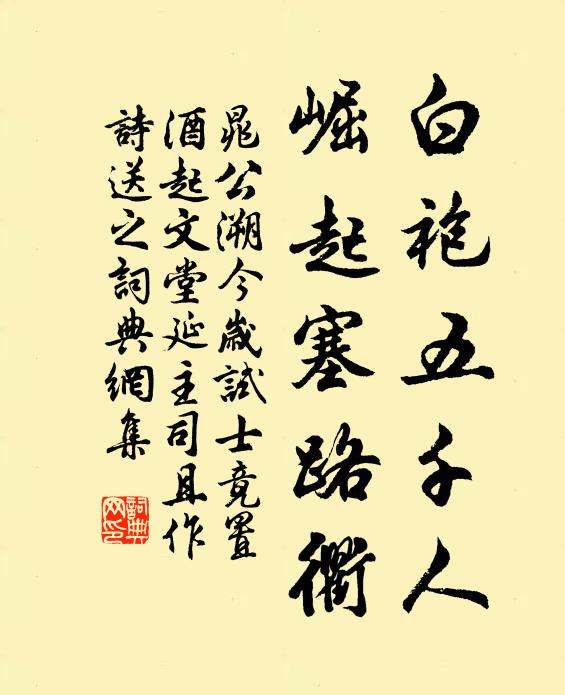 白袍五千人
崛起塞路衢
晁公溯今歳試士竟置
酒起文堂延主司且作
詩送之詞典網集
詞典
网印